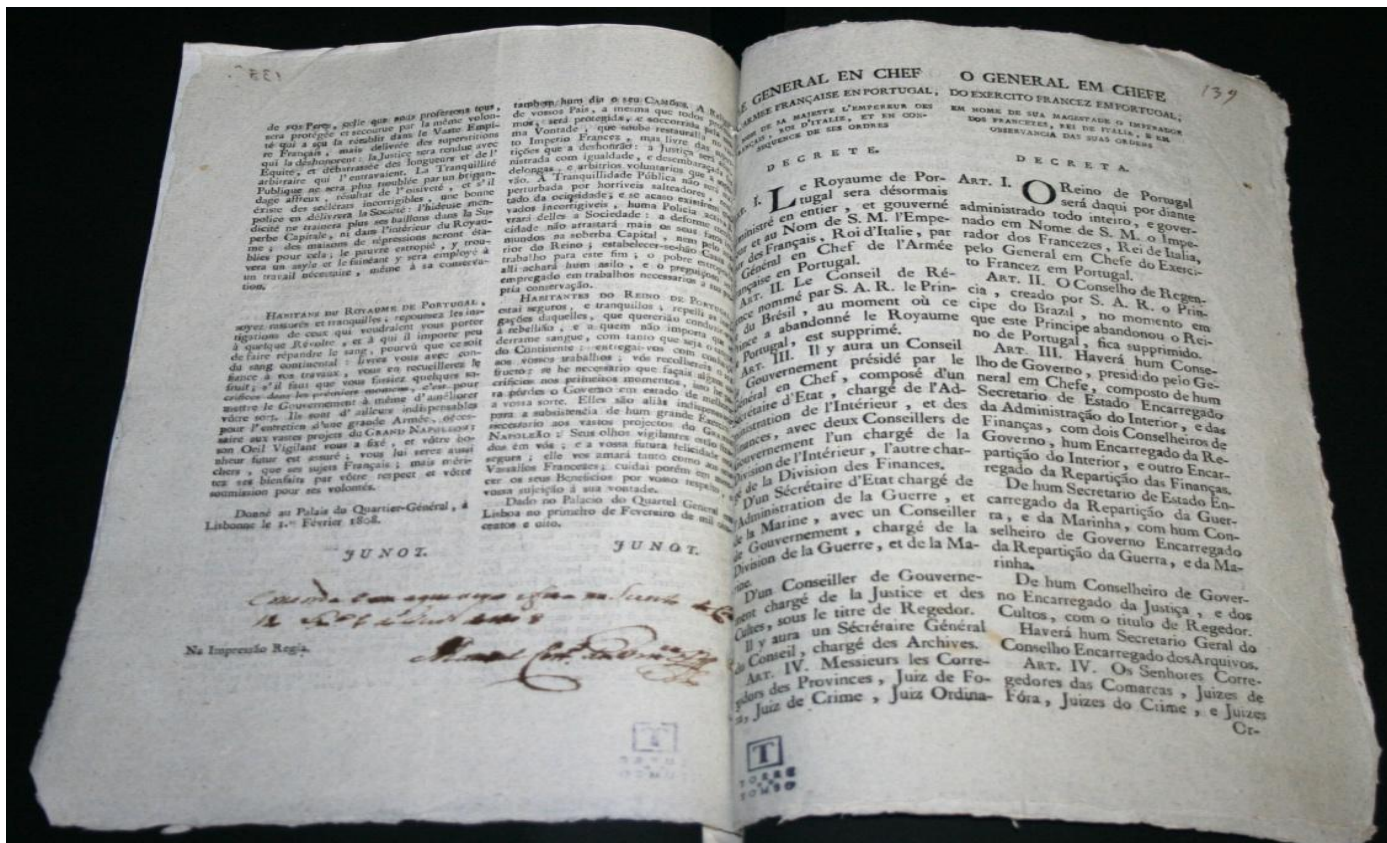 de vos Peres, celle que nous professons tous,
sera protégée et secourue par la même volon-
té qui a sçu la rétablir dans le Vaste Empi-
re Français, mais délivrée des superstitions
qui la deshonorent: la Justice sera rendue avec
Equité, et débarrassée des longueurs et de l'
arbitraire qui l'entravaient. La Tranquillité
Publique ne sera plus troublée par un brigan-
dage affreux, résultat de l'oisiveté, et s'il
éxiste des scélérats incorrigibles, une bonne
police en délivrera la Société: l'hideuse men-
dicité ne trainera plus ses haillons dans la Su-
perbe Capitale, ni dans l'intérieur du Royau-
me; des maisons de répressions seront éta-
blies pour cela; le pauvre estropié, y trou-
vera un asyle et le fainéant y sera employé à
un travail nécessaire, même à sa conserva-
tion.
HABITANS DU ROYAUME DE PORTUGAL,
soyez rassurés et tranquilles; repoussez les ins-
tigations de ceux qui voudraient vous porter
à quelque Révolte, et à qui il importe peu
de faire répandre le sang, pourvû que ce soit
du sang continental: livrez vous avec con-
fiance à vos travaux, vous en recueillerez le
fruit; s'il faut que vous fassiez quelques sa-
crifices dans les premiers momens, c'est pour
mettre le Gouvernement à même d'améliorer
vôtre sort. Ils sont d'ailleurs indispensables
pour l'entretien d'une grande Armée, néces-
saire aux vastes projets du GRAND NAPOLEON:
son Oeil Vigilant vous a fixé, et vôtre bo-
nheur futur est assuré; vous lui serez aussi
chers, que ses sujets Français; mais méri-
tez ses bienfaits par vôtre respect et vôtre
soumission pour ses volontés.
Donné au Palais du Quartier-Général, à
Lisbonne le 1.er Février 1808.
JUNOT.
Na Impressão Regia.
tambem hum dia o seu CAMÕES. A
de vossos Pais, a mesma que todos
mos, será protegida, e soccorrida pela
ma Vontade, que soube restaurala no
to Imperio Francez, mas livre das
tições que a deshonrão: a Justiça será
nistrada com igualdade, e desembaraçada
delongas, e arbitrios voluntarios que a
vão. A Tranquillidade Pública não será
perturbada por horriveis salteadores,
tado da ociosidade; e se acaso existirem
vados incorrigiveis, huma Policia activa
vrará delles a Sociedade: a deforme
cidade não arrastará mais os seus
mundos na soberba Capital, nem pelo
rior do Reino; estabelecer-se-hão Casas
trabalho para este fim; o pobre estropeado
alli achará hum asilo, e o preguiçoso
empregado em trabalhos necessarios á sua
pria conservação.
HABITANTES DO REINO DE
estai seguros, e tranquillos; repelli as
gações daquelles, que quererião conduzir
á rebellião, e a quem não importa que
derrame sangue, com tanto que seja o
do Continente: entregai-vos com
aos vossos trabalhos; vós recolhereis o
fructo: se he necessario que façais alguns
crificios nos primeiros momentos, isto he
ra pôrdes o Governo em estado de
a vossa sorte. Elles são aliás
para a subsistencia de hum grande Exercito
necessario aos vastos projectos do
NAPOLEÃO: Seus olhos vigilantes estão
dos em vós, e a vossa futura felicidade
segura; elle vos amará tanto como aos
Vassallos Francezes; cuidai porém em
cer os seus Beneficios por vosso respeito
vossa sujeição á sua vontade.
Dado no Palacio do Quartel General
Lisboa no primeiro de Fevereiro de mil
centos e oito.
JUNOT.
139
GENERAL EN CHEF
FRANÇAISE EN PORTUGAL,
DE SA MAJESTE L'EMPEREUR DES
ROI D'ITALIE, ET EN CON-
SEQUENCE DE SES ORDRES
DECRETE.
I. Le Royaume de Por-
tugal sera désormais
en entier, et gouverné
et au Nom de S. M. l'Empe-
des Français, Roi d'Italie, par
Général en Chef de l'Armée
en Portugal.
ART. II. Le Conseil de Ré-
nommé par S. A. R. le Prin-
du Brésil, au moment où ce
a abandonné le Royaume
Portugal, est supprimé.
ART. III. Il y aura un Conseil
Gouvernement présidé par le
en Chef, composé d'un
d'Etat, chargé de l'Ad-
de l'Intérieur, et des
avec deux Conseillers de
Gouvernement l'un chargé de la
Division de l'Intérieur, l'autre char-
gé de la Division des Finances.
D'un Sécrétaire d'Etat chargé de
l'Administration de la Guerre, et
de la Marine, avec un Conseiller
de Gouvernement, chargé de la
Division de la Guerre, et de la Ma-
rine.
D'un Conseiller de Gouverne-
ment chargé de la Justice et des
Cultes, sous le titre de Regedor.
Il y aura un Sécrétaire Général
du Conseil, chargé des Archives.
ART. IV. Messieurs les Corre-
gedors des Provinces, Juiz de Fo-
ra, Juiz de Crime, Juiz Ordina-
O GENERAL EM CHEFE
DO EXERCITO FRANCEZ EM PORTUGAL,
EM NOME DE SUA MAGESTADE O IMPERADOR
DOS FRANCEZES, REI DE ITALIA, E EM
OBSERVANCIA DAS SUAS ORDENS
DECRETA.
ART. I. O Reino de Portugal
será daqui por diante
administrado todo inteiro, e gover-
nado em Nome de S. M. o Impe-
rador dos Francezes, Rei de Italia,
pelo General em Chefe do Exerci-
to Francez em Portugal.
ART. II. O Conselho de Regen-
cia, creado por S. A. R. o Prin-
cipe do Brazil, no momento em
que este Principe abandonou o Rei-
no de Portugal, fica supprimido.
ART. III. Haverá hum Conse-
lho de Governo, presidido pelo Ge-
neral em Chefe, composto de hum
Secretario de Estado Encarregado
da Administração do Interior, e das
Finanças, com dois Conselheiros de
Governo, hum Encarregado da Re-
partição do Interior, e outro Encar-
regado da Repartição das Finanças.
De hum Secretario de Estado En-
carregado da Repartição da Guer-
ra, e da Marinha, com hum Con-
selheiro de Governo Encarregado
da Repartição da Guerra, e da Ma-
rinha.
De hum Conselheiro de Gover-
no Encarregado da Justiça, e dos
Cultos, com o titulo de Regedor.
Haverá hum Secretario Geral do
Conselho Encarregado dos Arquivos.
ART. IV. Os Senhores Corre-
gedores das Comarcas, Juizes de
Fóra, Juizes do Crime, e Juizes
Or-
T
TORRE
TOMBO